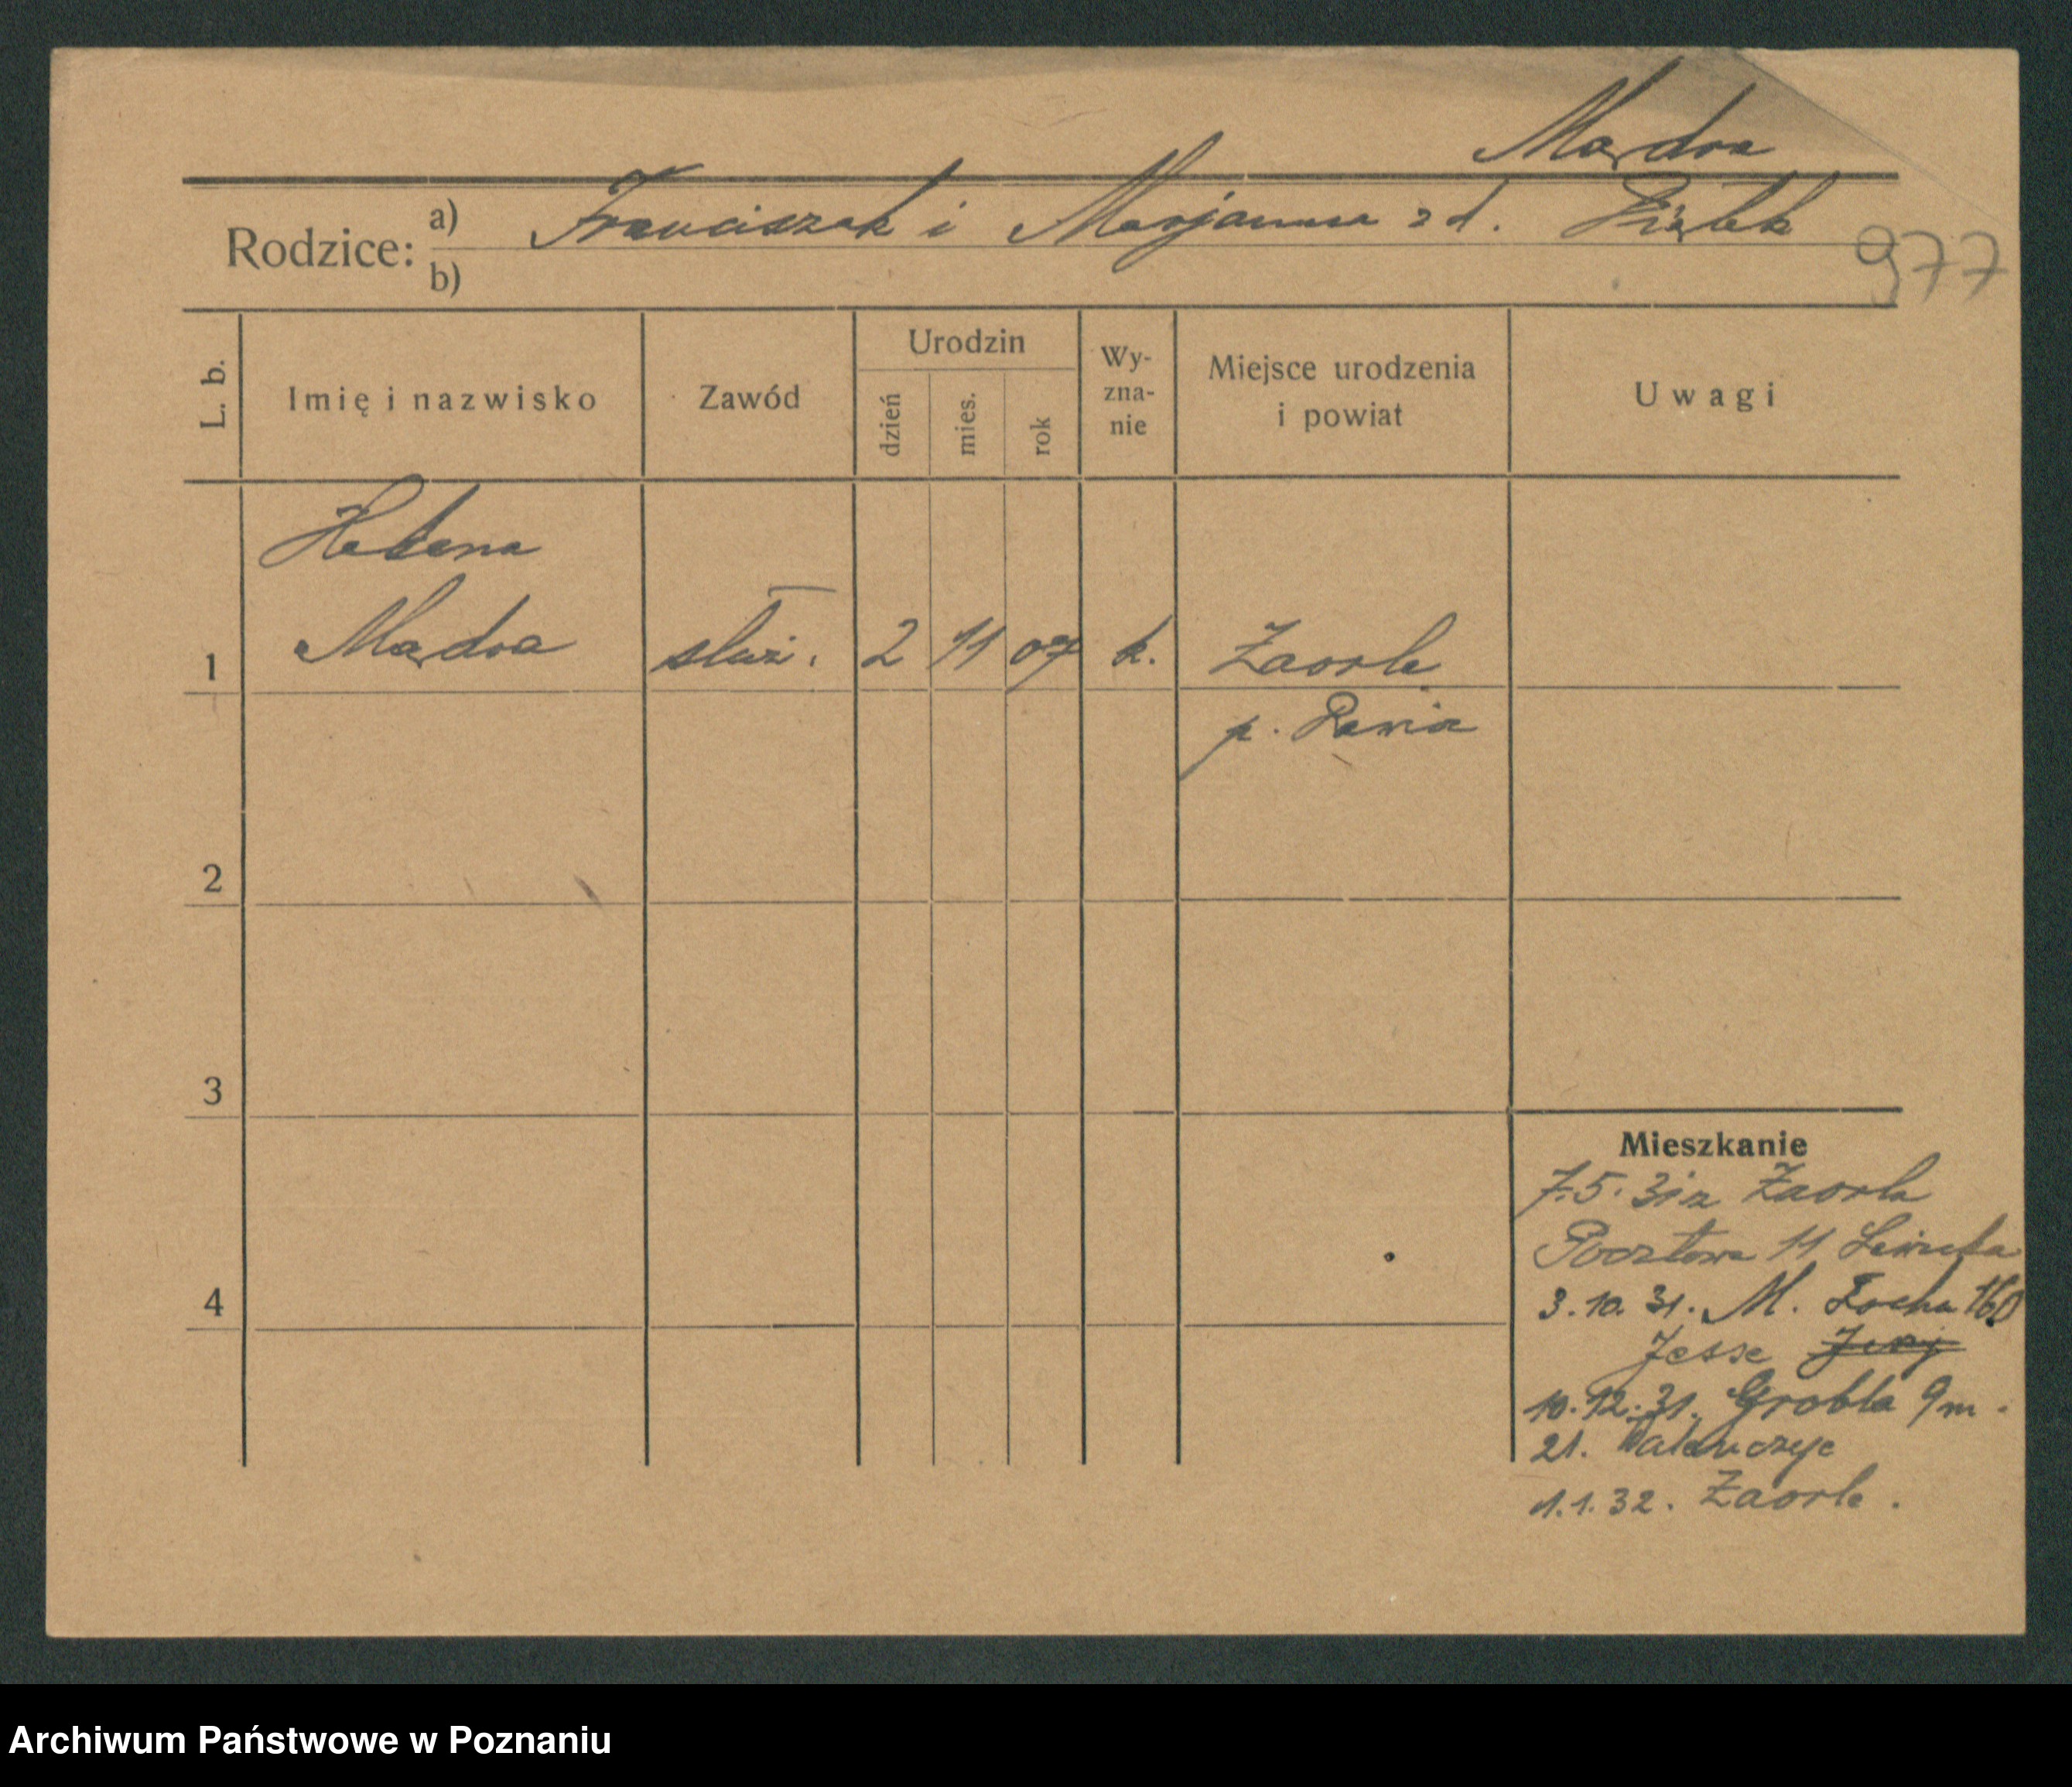 Mądra
Rodzice: a) Franciszek i Marjanna zd. Piątek
b)
977
L. b.
Imię i nazwisko
Zawód
Urodzin
dzień
mies.
rok
Wy-
zna-
nie
Miejsce urodzenia
i powiat
Uwagi
Helena
1 Mądra służ. 2 11 07 k. Zaorle
p. Rawicz
2
3
Mieszkanie
7.5.31 z Zaorla
Pocztowa 11
4
3.10.31. M. Focha 160
Jesse
10.12.31. Grobla 9 m.
21.
1.1.32. Zaorle.
Archiwum Państwowe w Poznaniu